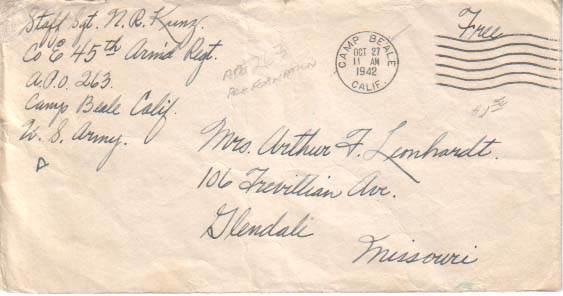 Staff Sgt. N. R. Kunz.
Co E 45th Arm'd Regt.
A.P.O. 263.
Camp Beale Calif.
U. S. Army.
APO 263
CAMP BEALE
OCT 27
11 AM
1942
CALIF.
Free
Mrs. Arthur F. Leonhardt.
106 Trevillian Ave.
Glendale
Missouri